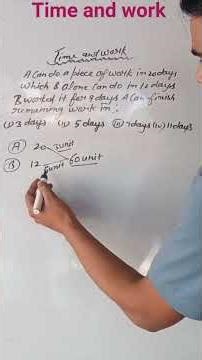 Time and work
Time and work
A can do a piece of work in 20 days
which B alone can do in 12 days
B worked it for 9 days A can finish
remaining work in :
(i) 3 days (ii) 5 days (iii) 7 days (iv) 11 days
(A) 20 3unit
60unit
(B) 12 5unit